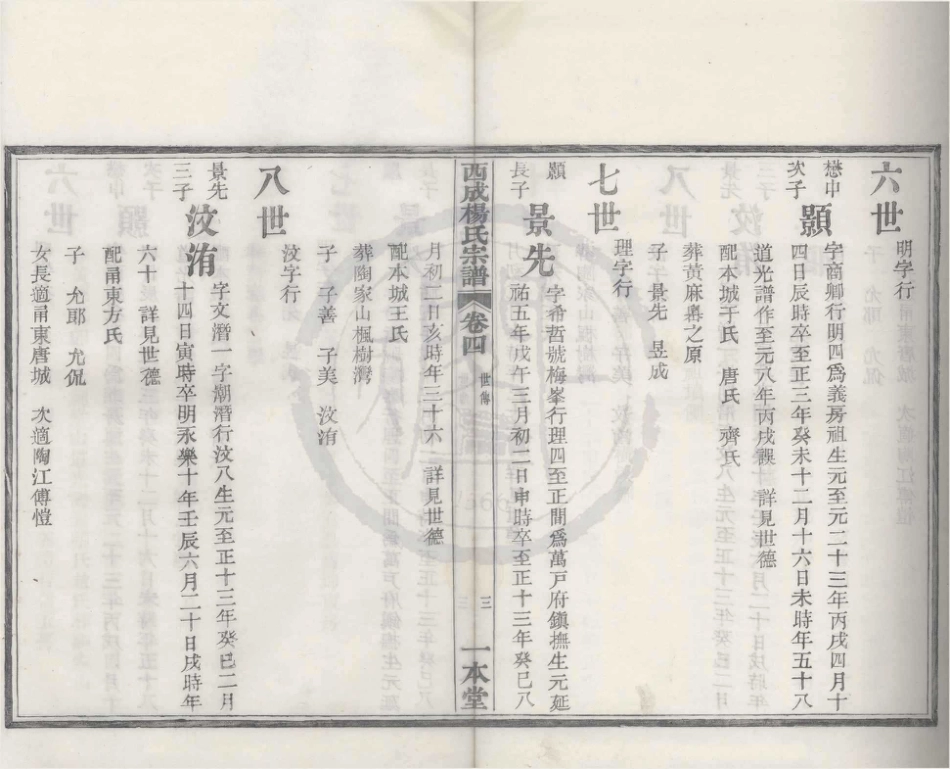 六世
明字行
懋中
次子
顥
字商卿行明四爲義房祖生元至元二十三年丙戌四月十
四日辰時卒至正三年癸未十二月十六日未時年五十八
道光譜作至元八年丙戌觀　詳見世德
配本城于氏　唐氏　齊氏
葬黃麻嶴之原
子　景先　昱成
七世
理字行
顥
長子
景先
字希哲號梅峯行理四至正間爲萬戸府鎮撫生元延
祐五年戊午三月初二日申時卒至正十三年癸巳八
西成楊氏宗譜
卷四
世傳
三
一本堂
月初二日亥時年三十六　詳見世德
配本城王氏
葬陶家山楓樹灣
子　子善　子美　汶洧
八世
汶字行
景先
三子
汶洧
字文潛一字潮潛行汶八生元至正十三年癸巳二月
十四日寅時卒明永樂十年壬辰六月二十日戌時年
六十　詳見世德
配甬東方氏
子　允耶　允侃
女長適甬東唐城　次適陶江傅愷